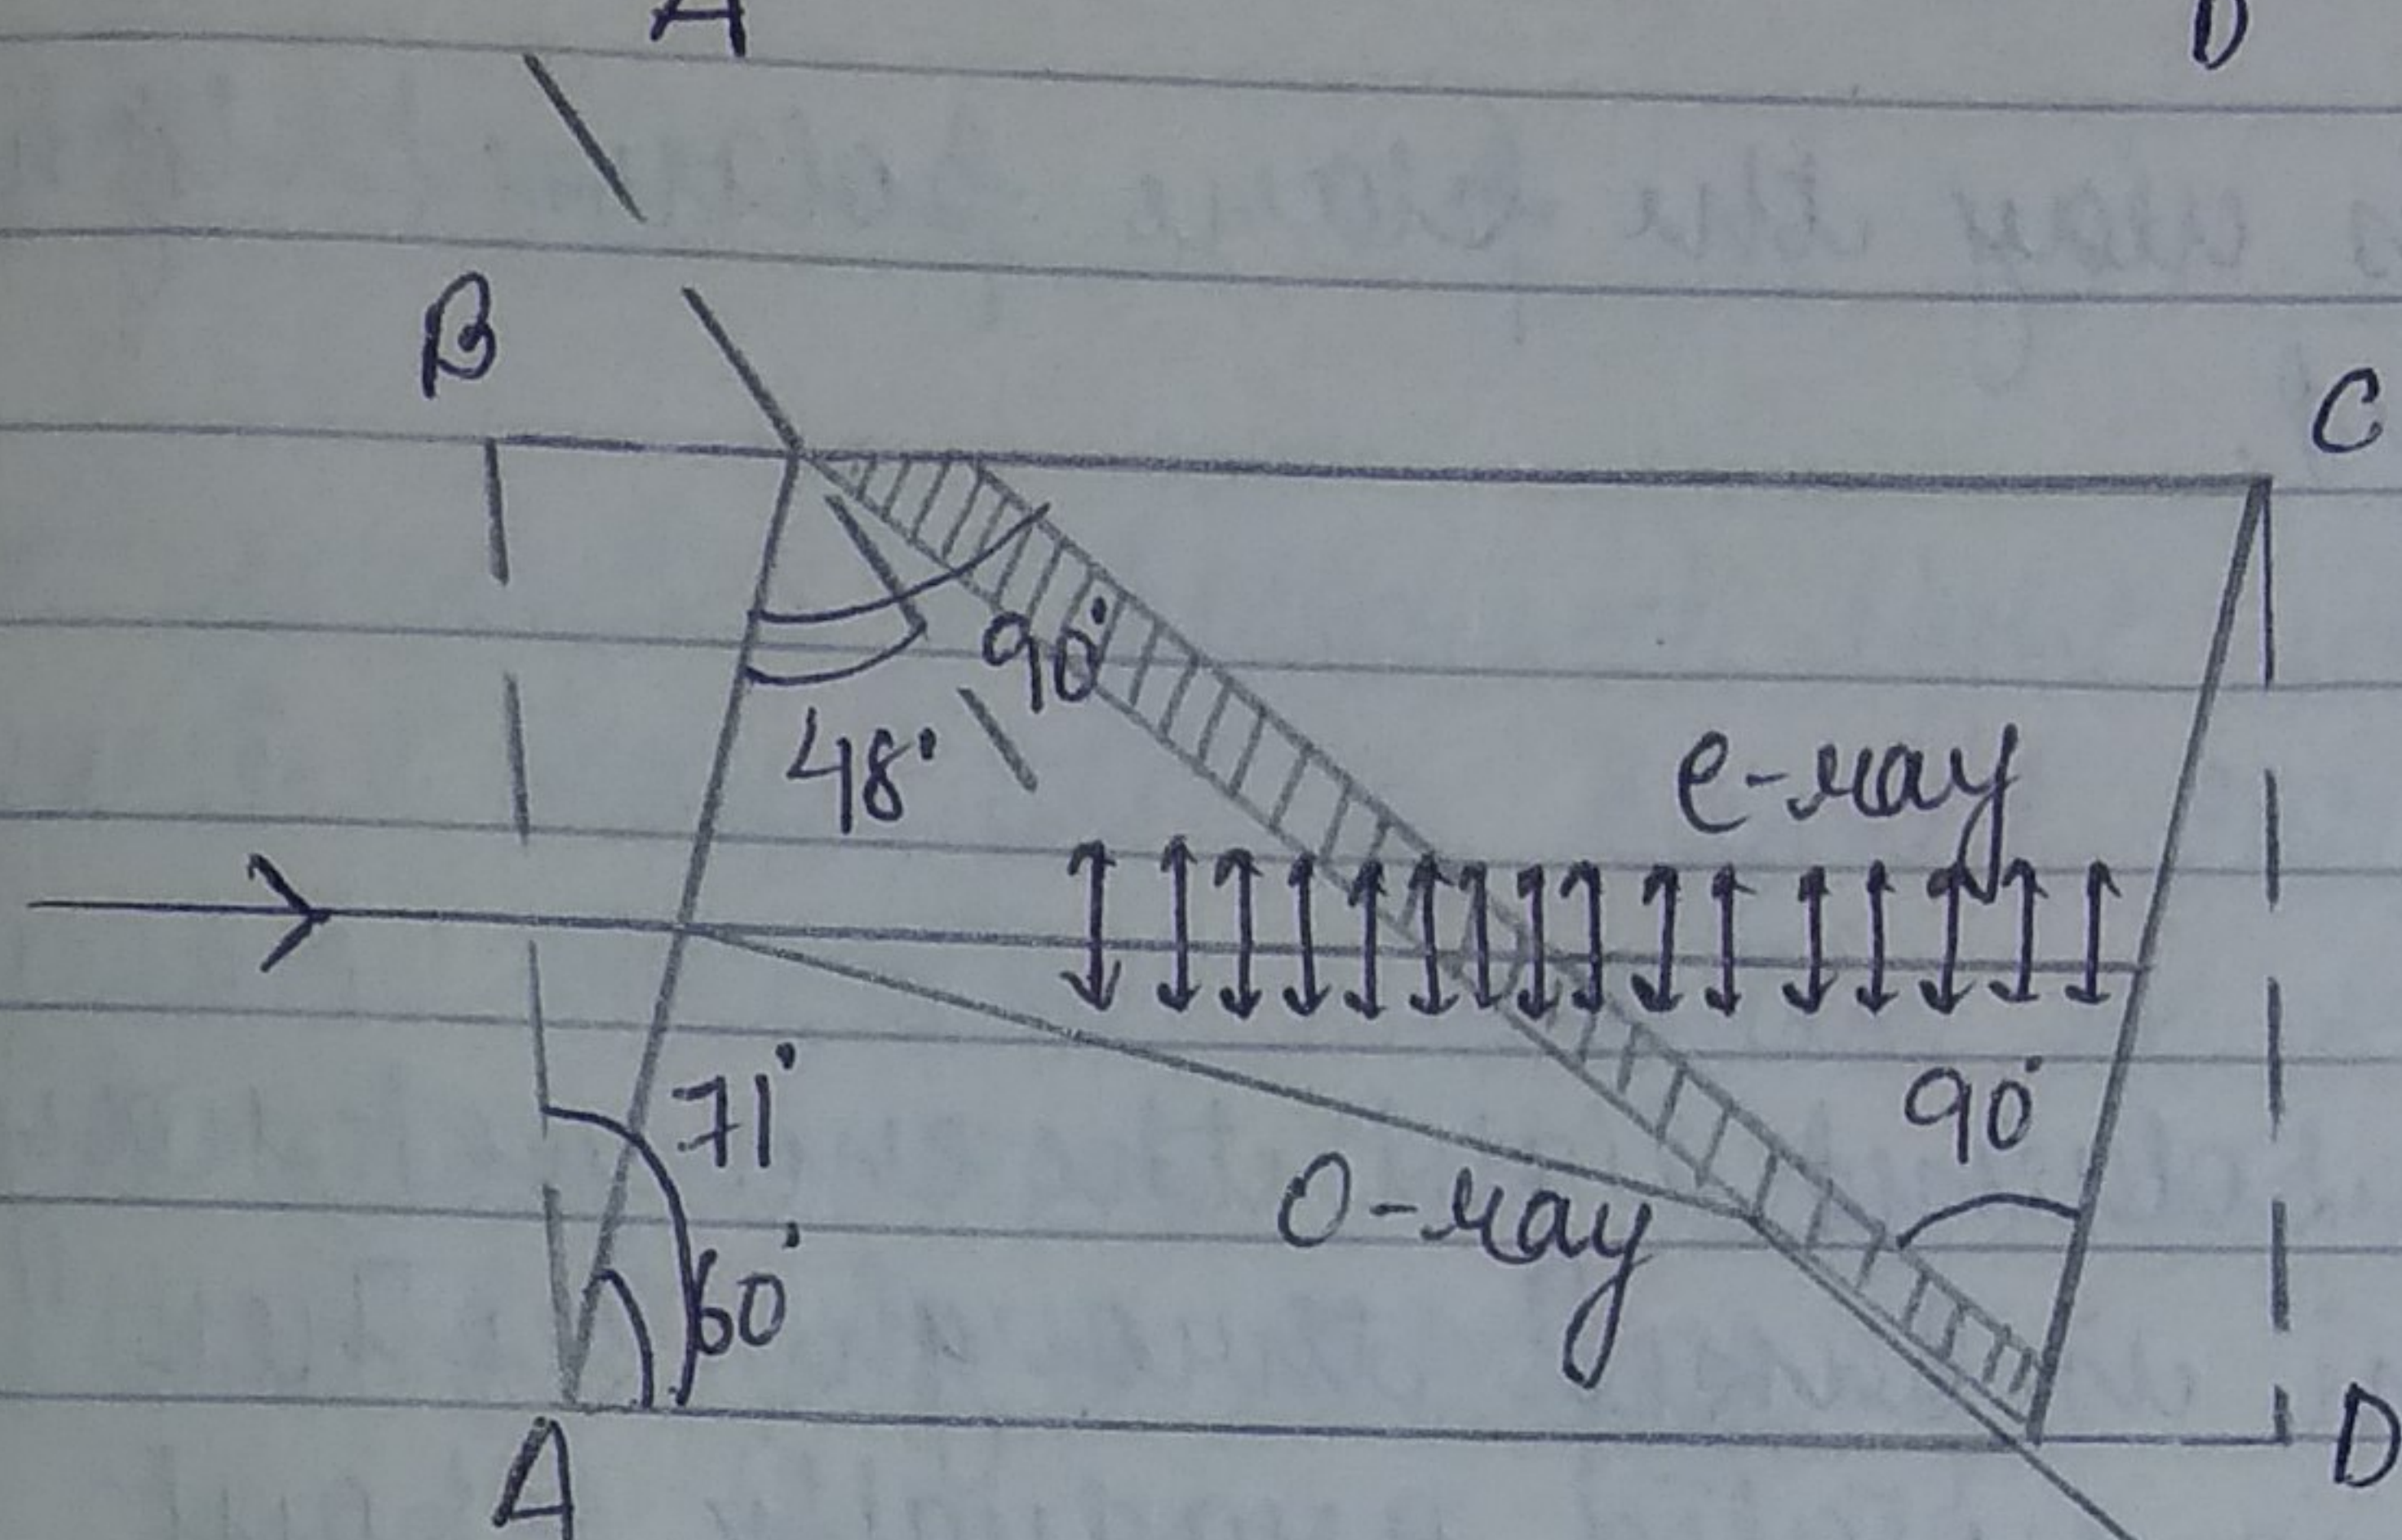 A D
B
C
90°
48°
e-ray
71°
90°
O-ray
60°
A
D